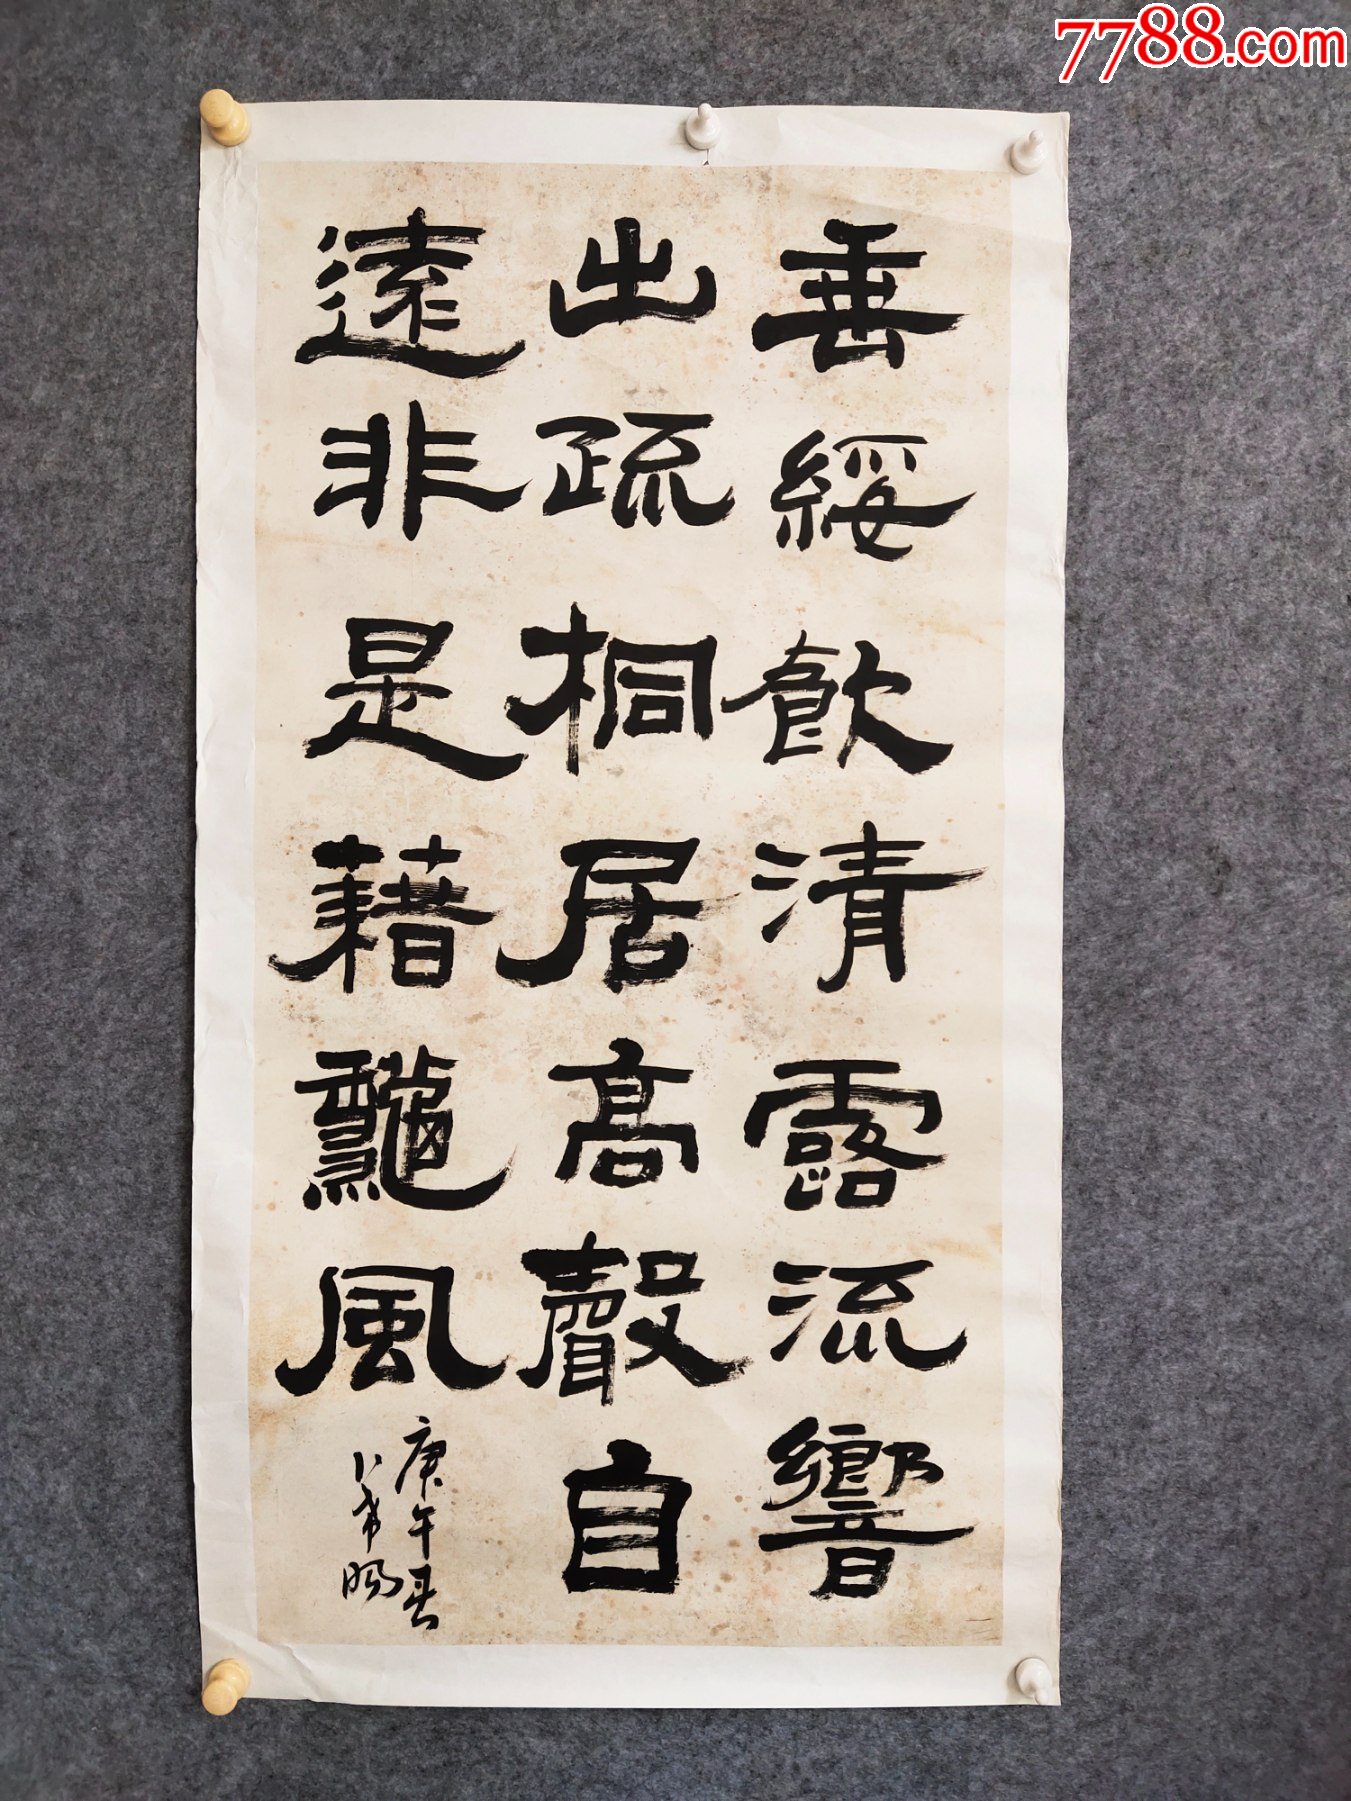 7788.com
垂綏飲清露流響
出疏桐居高聲自
遠非是藉龝風
庚午春
卜希暘